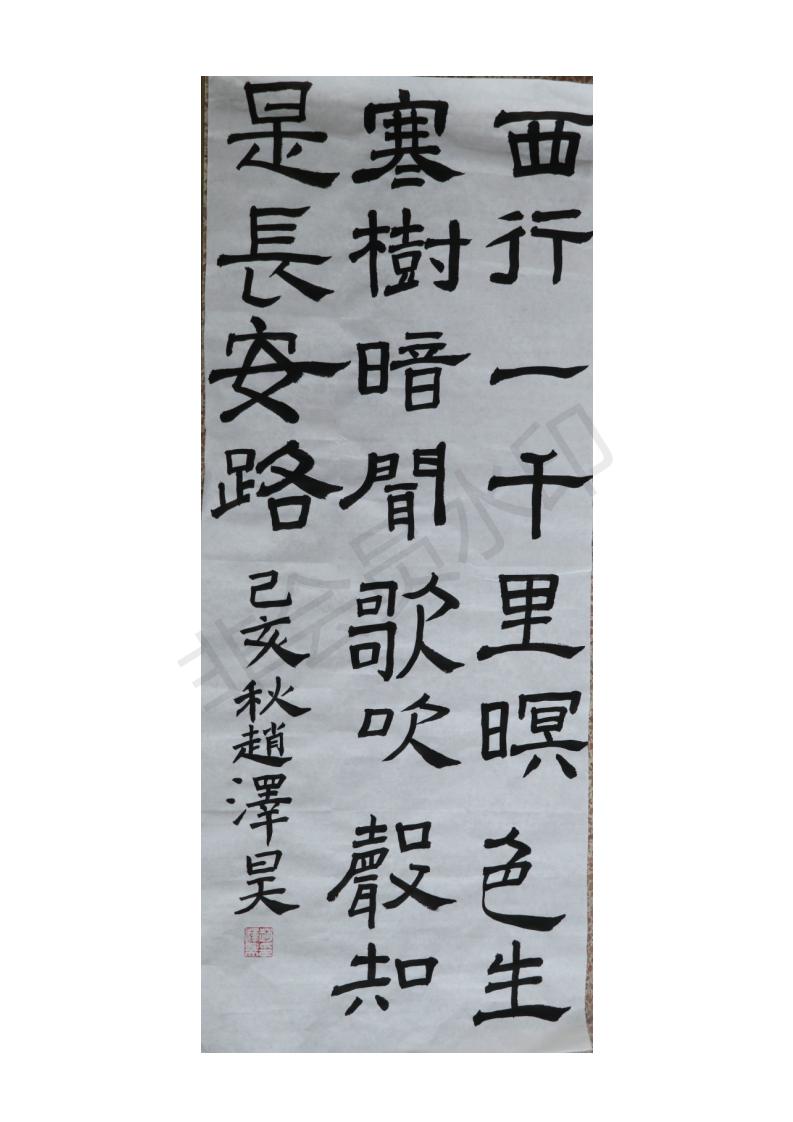 西行一千里暝色生
寒樹暗聞歌吹聲知
是長安路
己亥秋趙澤昊
非会员水印